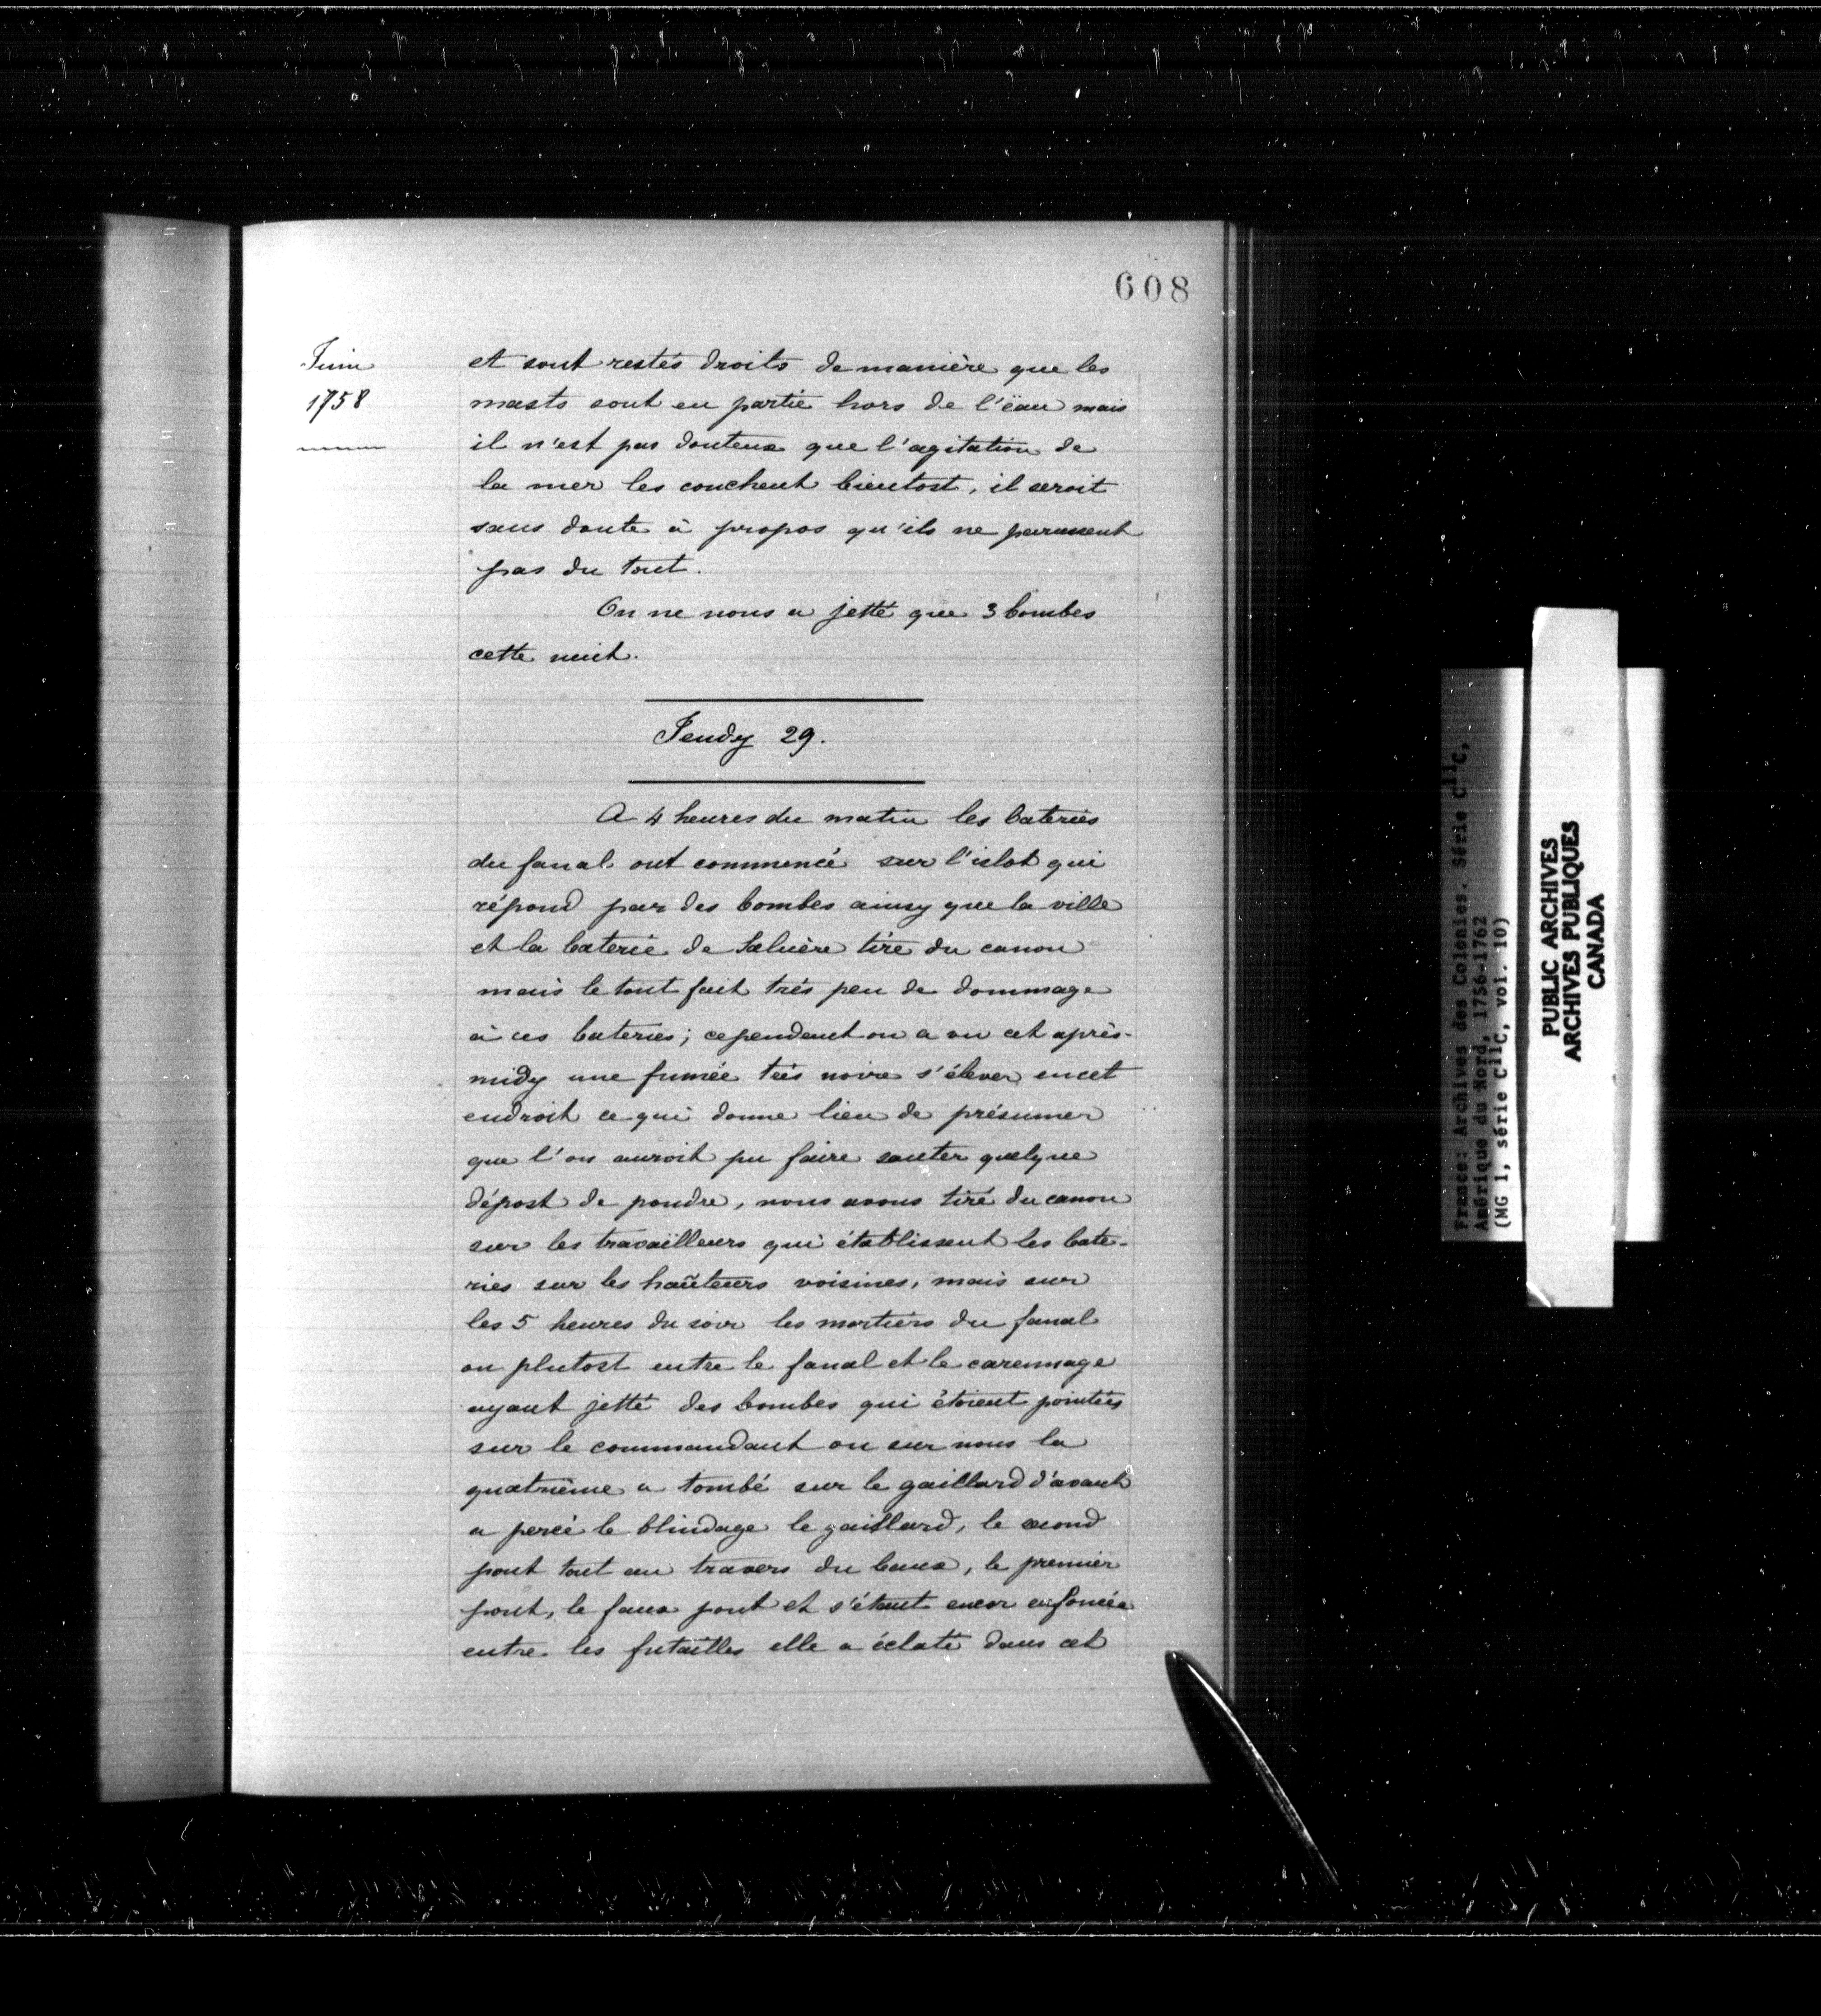 608
Juin
1758
et sont restés droits de manière que les
masts sont en partie hors de l'ëau mais
il n'est pas douteux que l'agitation de
la mer les couchent bientost, il seroit
sans doute à propos qu'ils ne parussent
pas du tout.
On ne nous a jetté que 3 bombes
cette nuit.
Jeudy 29.
A 4 heures du matin les bateries
du fanal ont commencé sur l'islot qui
répond par des bombes ainsy que la ville
et la baterie de Saluère tire du canon
mais le tout fait très peu de dommage
à ces bateries; cependant on a vu cet après-
midy une fumée très noire s'élever en cet
endroit ce qui donne lieu de présumer
que l'on auroit pu faire sauter quelque
dépost de poudre, nous avons tiré du canon
sur les travailleurs qui établissent les bate-
ries sur les hauteurs voisines, mais sur
les 5 heures du soir les mortiers du fanal
ou plutost entre le fanal et le carennage
ayant jetté des bombes qui étoient pointées
sur le commandant ou sur nous la
quatrième a tombé sur le gaillard d'avant
a percé le blindage le gaillard, le second
pont tout au travers du baux, le premier
pont, le faux pont et s'étant encor enfoncée
entre les futailles elle a éclaté dans cet
France: Archives des Colonies. Série C11C,
Amérique du Nord, 1756-1762
(MG 1, série C11C, vol. 10)
PUBLIC ARCHIVES
ARCHIVES PUBLIQUES
CANADA